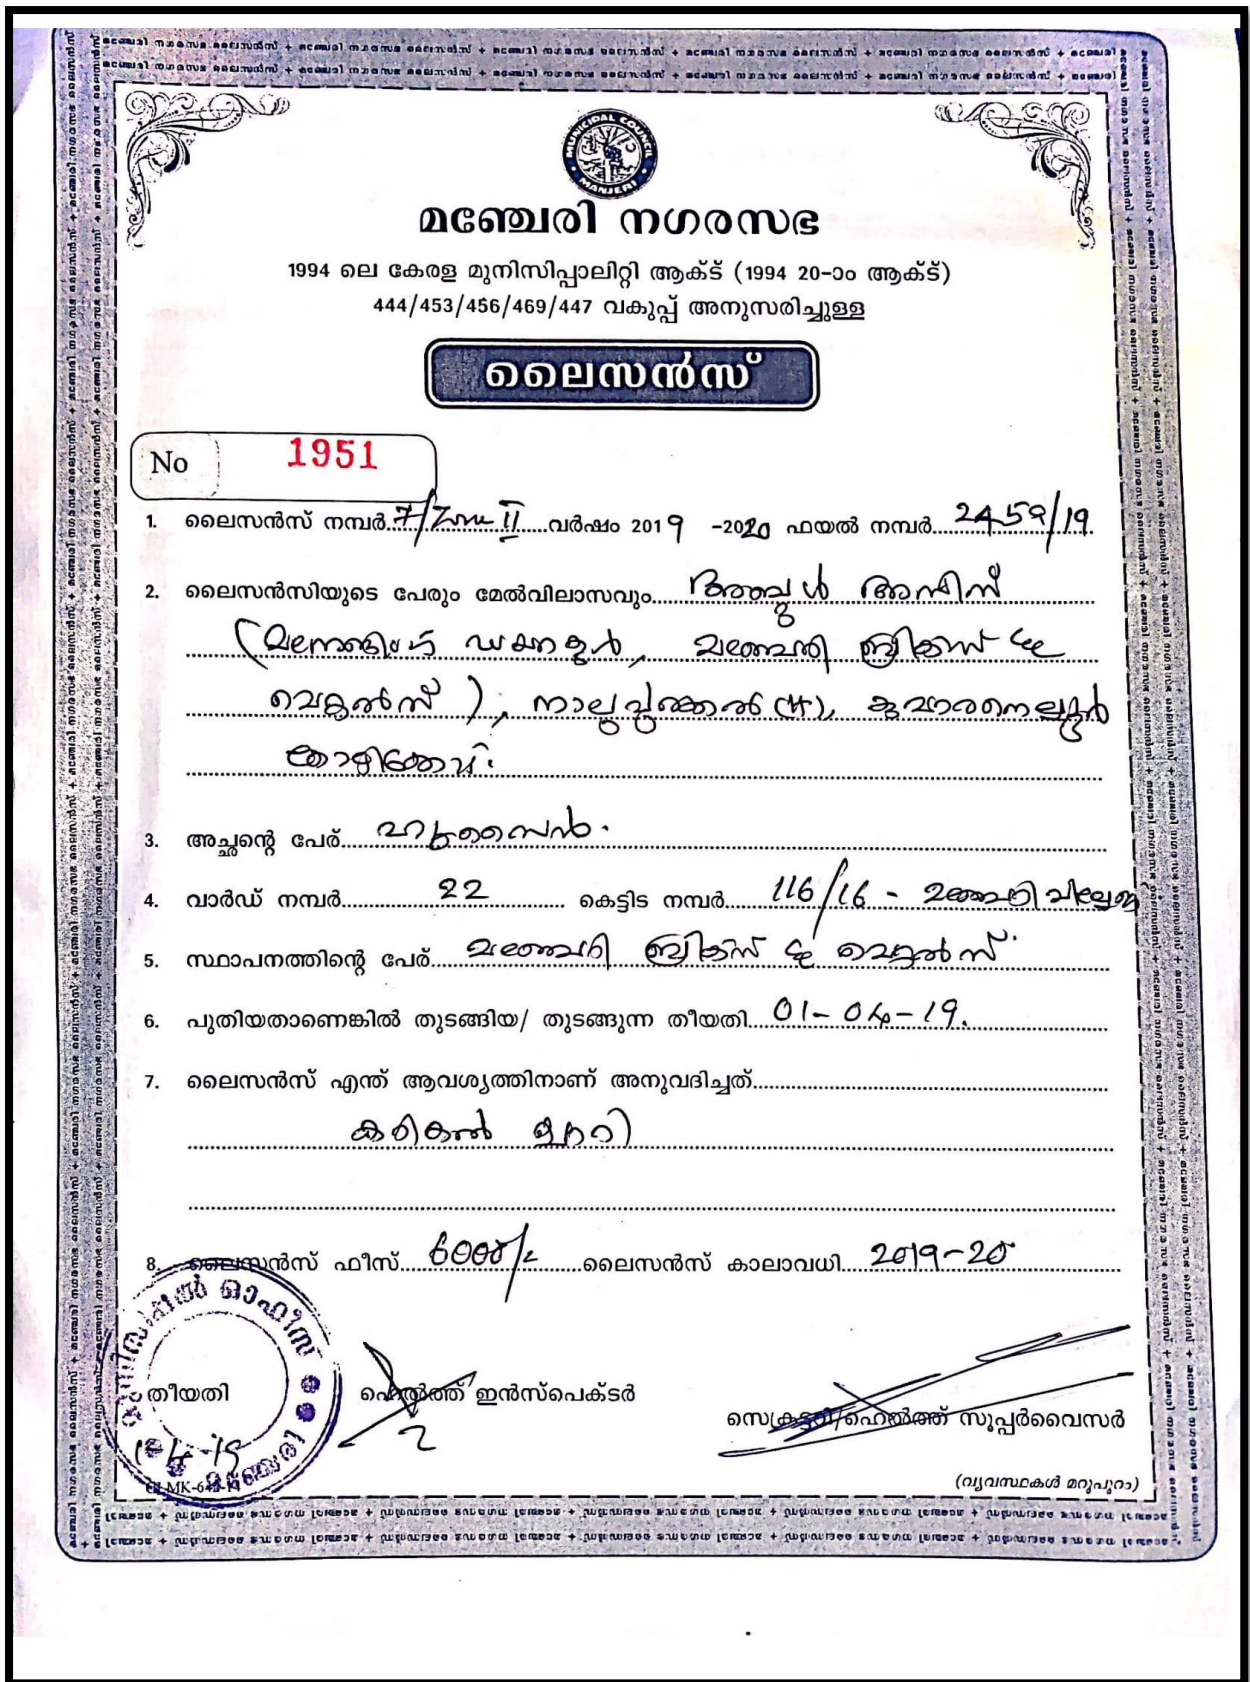 MUNICIPAL COUNCIL
MANJERI
മഞ്ചേരി നഗരസഭ
1994 ലെ കേരള മുനിസിപ്പാലിറ്റി ആക്ട് (1994 20-ാം ആക്ട്)
444/453/456/469/447 വകുപ്പ് അനുസരിച്ചുള്ള
ലൈസൻസ്
No 1951
1. ലൈസൻസ് നമ്പർ 7/Zone II വർഷം 2019 -2020 ഫയൽ നമ്പർ 2459/19
2. ലൈസൻസിയുടെ പേരും മേൽവിലാസവും അബ്ദുൾ അസീസ്
(മാനേജിംഗ് ഡയറക്ടർ, മഞ്ചേരി ബ്രിക്സ് &
മെറ്റൽസ്), നാലുപുരക്കൽ (H),
കോഴിക്കോട്.
3. അച്ഛന്റെ പേര് ഹുസൈൻ.
4. വാർഡ് നമ്പർ 22 കെട്ടിട നമ്പർ 116/16 - മഞ്ചേരി വില്ലേജ്
5. സ്ഥാപനത്തിന്റെ പേര് മഞ്ചേരി ബ്രിക്സ് & മെറ്റൽസ്
6. പുതിയതാണെങ്കിൽ തുടങ്ങിയ/ തുടങ്ങുന്ന തീയതി 01-04-19.
7. ലൈസൻസ് എന്ത് ആവശ്യത്തിനാണ് അനുവദിച്ചത്
കരിങ്കൽ ക്വാറി
8. ലൈസൻസ് ഫീസ് 6000/- ലൈസൻസ് കാലാവധി 2019-20
മുനിസിപ്പൽ ഓഫീസ് മഞ്ചേരി
തീയതി ഹെൽത്ത് ഇൻസ്പെക്ടർ
സെക്രട്ടറി/ഹെൽത്ത് സൂപ്പർവൈസർ
1-4-19
(വ്യവസ്ഥകൾ മറുപുറം)